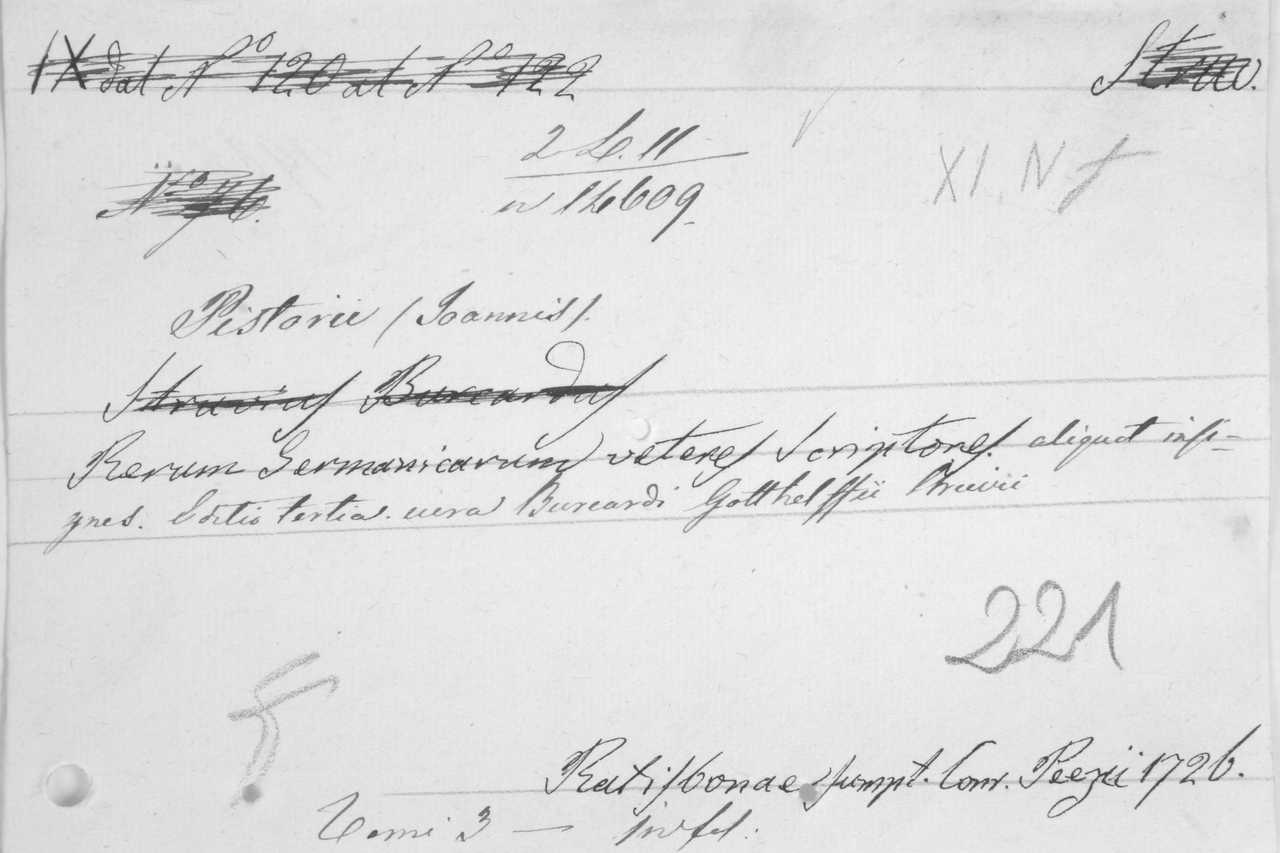 IX dat Nº 120 at Nº 122 Struv.
2 L. 11
XI. N
Nro 76.
14609
Pistorii (Joannis).
Struvius Burcardus
Rerum Germanicarum veteres Scriptores. aliquot insi-
gnes. Editio tertia. cura Burcardi Gotthelffii Struvii
221
F
Ratisbonae sumpt. Conr. Peezii 1726.
Tomi 3 — in fol.